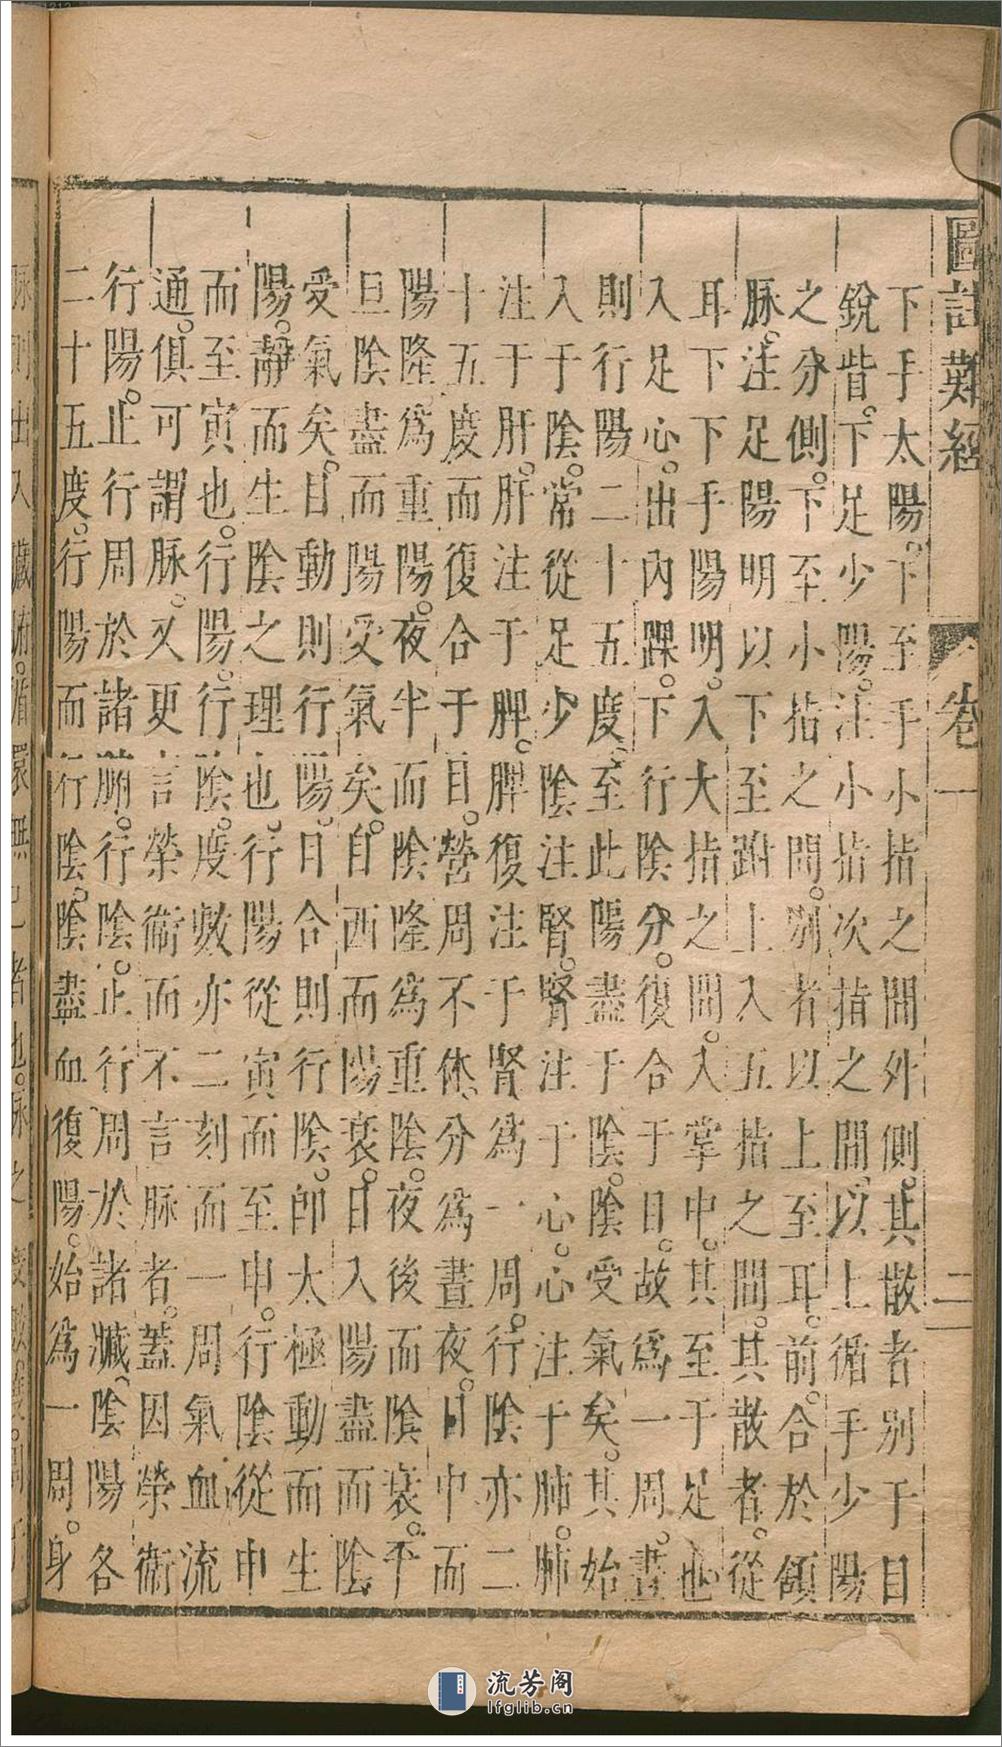 圖註難經
卷一
二
下手太陽。下至手小指之間外側。其散者別于目
銳眥。下足少陽。注小指次指之間。以上循手少陽
之分側。下至小指之間。別者以上至耳前。合於頷
脉。注足陽明以下至跗上入五指之間。其散者。從
耳下下手陽明。入大指之間。入掌中。其至于足也
入足心。出內踝。下行陰分。復合于目。故爲一周。晝
則行陽二十五度。至此陽盡于陰。陰受氣矣。其始
入于陰。常從足少陰注腎。腎注于心。心注于肺。肺
注于肝。肝注于脾。脾復注于腎爲一周。行陰亦二
十五度而復合于目。營周不休。分爲晝夜。日中而
陽隆爲重陽。夜半而陰隆爲重陰。夜後而陰衰。平
旦陰盡而陽受氣矣。自西而陽衰。日入陽盡而陰
受氣矣。目動則行陽。目合則行陰。卽太極動而生
陽。靜而生陰之理也。行陽從寅而至申。行陰從申
而至寅也。行陽。行陰。度數亦二刻而一周氣血流
通。俱可謂脉。又更言榮衞而不言脉者。蓋因榮衞
行陽。止行周於諸腑。行陰。止行周於諸臟。陰陽各
二十五度。行陽而行陰。陰盡而復陽。始爲一周。身